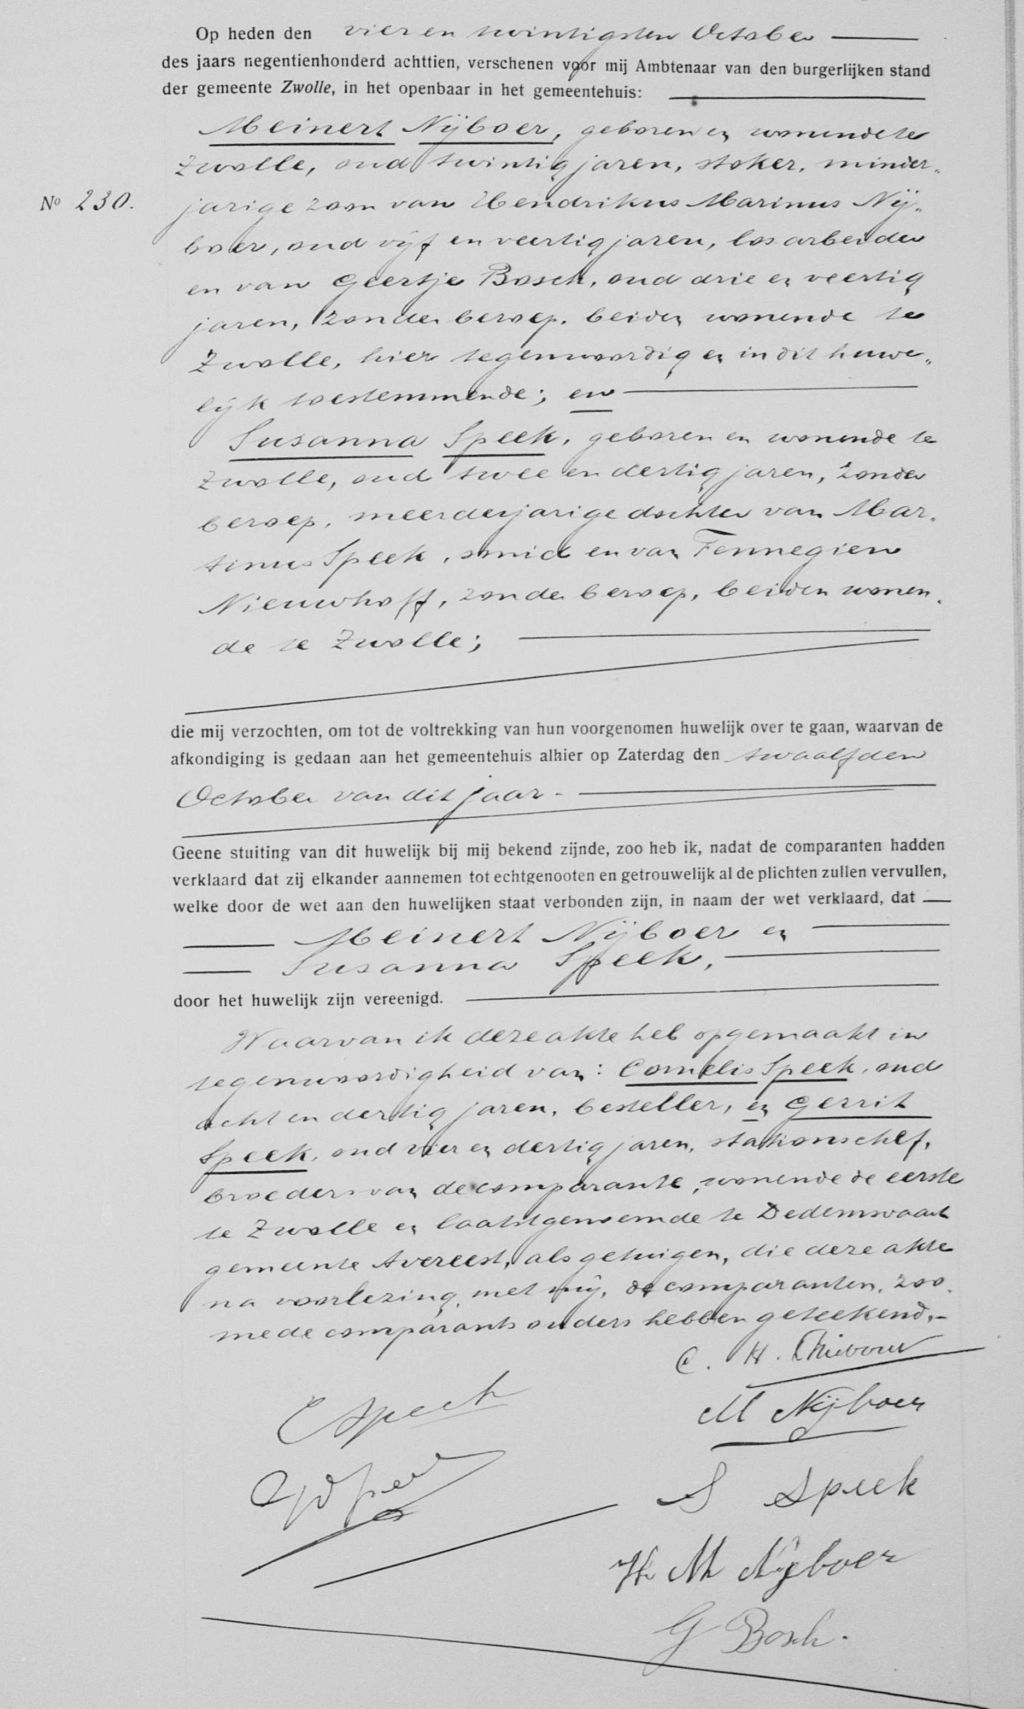 Op heden den vier en twintigsten October
des jaars negentienhonderd achttien, verschenen voor mij Ambtenaar van den burgerlijken stand
der gemeente Zwolle, in het openbaar in het gemeentehuis:
Meinert Nijboer, geboren en wonende te
Zwolle, oud twintig jaren, stoker, minder„
No 230.
jarige zoon van Hendrikus Marinus Nij„
boer, oud vijf en veertig jaren, los arbeider
en van Geertje Bosch, oud drie en veertig
jaren, zonder beroep, beiden wonende te
Zwolle, hier tegenwoordig en in dit huwe„
lijk toestemmende; en
Susanna Speek, geboren en wonende te
Zwolle, oud twee en dertig jaren, zonder
beroep, meerderjarige dochter van Mar„
tinus Speek, smid en van Fennegien
Nieuwhoff, zonder beroep, beiden wonen„
de te Zwolle;
die mij verzochten, om tot de voltrekking van hun voorgenomen huwelijk over te gaan, waarvan de
afkondiging is gedaan aan het gemeentehuis alhier op Zaterdag den twaalfden
October van dit jaar.
Geene stuiting van dit huwelijk bij mij bekend zijnde, zoo heb ik, nadat de comparanten hadden
verklaard dat zij elkander aannemen tot echtgenooten en getrouwelijk al de plichten zullen vervullen,
welke door de wet aan den huwelijken staat verbonden zijn, in naam der wet verklaard, dat
Meinert Nijboer en
Susanna Speek,
door het huwelijk zijn vereenigd.
Waarvan ik deze akte heb opgemaakt in
tegenwoordigheid van: Cornelis Speek, oud
acht en dertig jaren, besteller, en Gerrit
Speek, oud vier en dertig jaren, stationschef,
broeders van de comparante, wonende de eerste
te Zwolle en laatstgenoemde te Dedemsvaart
gemeente Avereest, als getuigen, die deze akte
na voorlezing met mij, de comparanten, zoo„
mede comparants ouders hebben geteekend.
C. H.
C Speek
M Nijboer
S Speek
H M Nijboer
G Bosch.